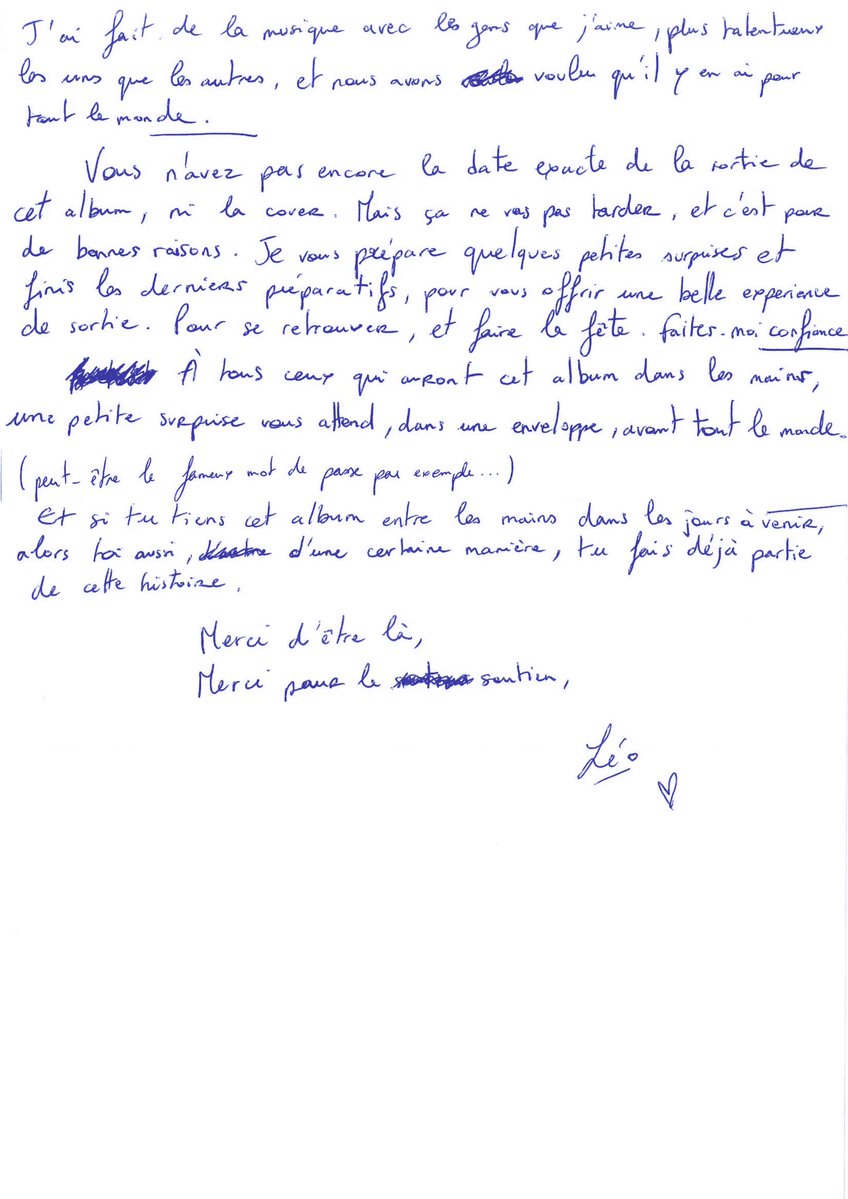 J'ai fait de la musique avec les gens que j'aime, plus talentueux
les uns que les autres, et nous avons voulu qu'il y en ai pour
tout le monde.
Vous n'avez pas encore la date exacte de la sortie de
cet album, ni la cover. Mais ça ne vas pas tarder, et c'est pour
de bonnes raisons. Je vous prépare quelques petites surprises et
finis les derniers préparatifs, pour vous offrir une belle experience
de sortie. Pour se retrouver, et faire la fête. Faites-moi confiance
À tous ceux qui auront cet album dans les mains,
une petite surprise vous attend, dans une enveloppe, avant tout le monde.
(peut-être le fameux mot de passe par exemple...)
Et si tu tiens cet album entre les mains dans les jours à venir,
alors toi aussi, d'une certaine manière, tu fais déjà partie
de cette histoire.
Merci d'être là,
Merci pour le soutien,
Léo